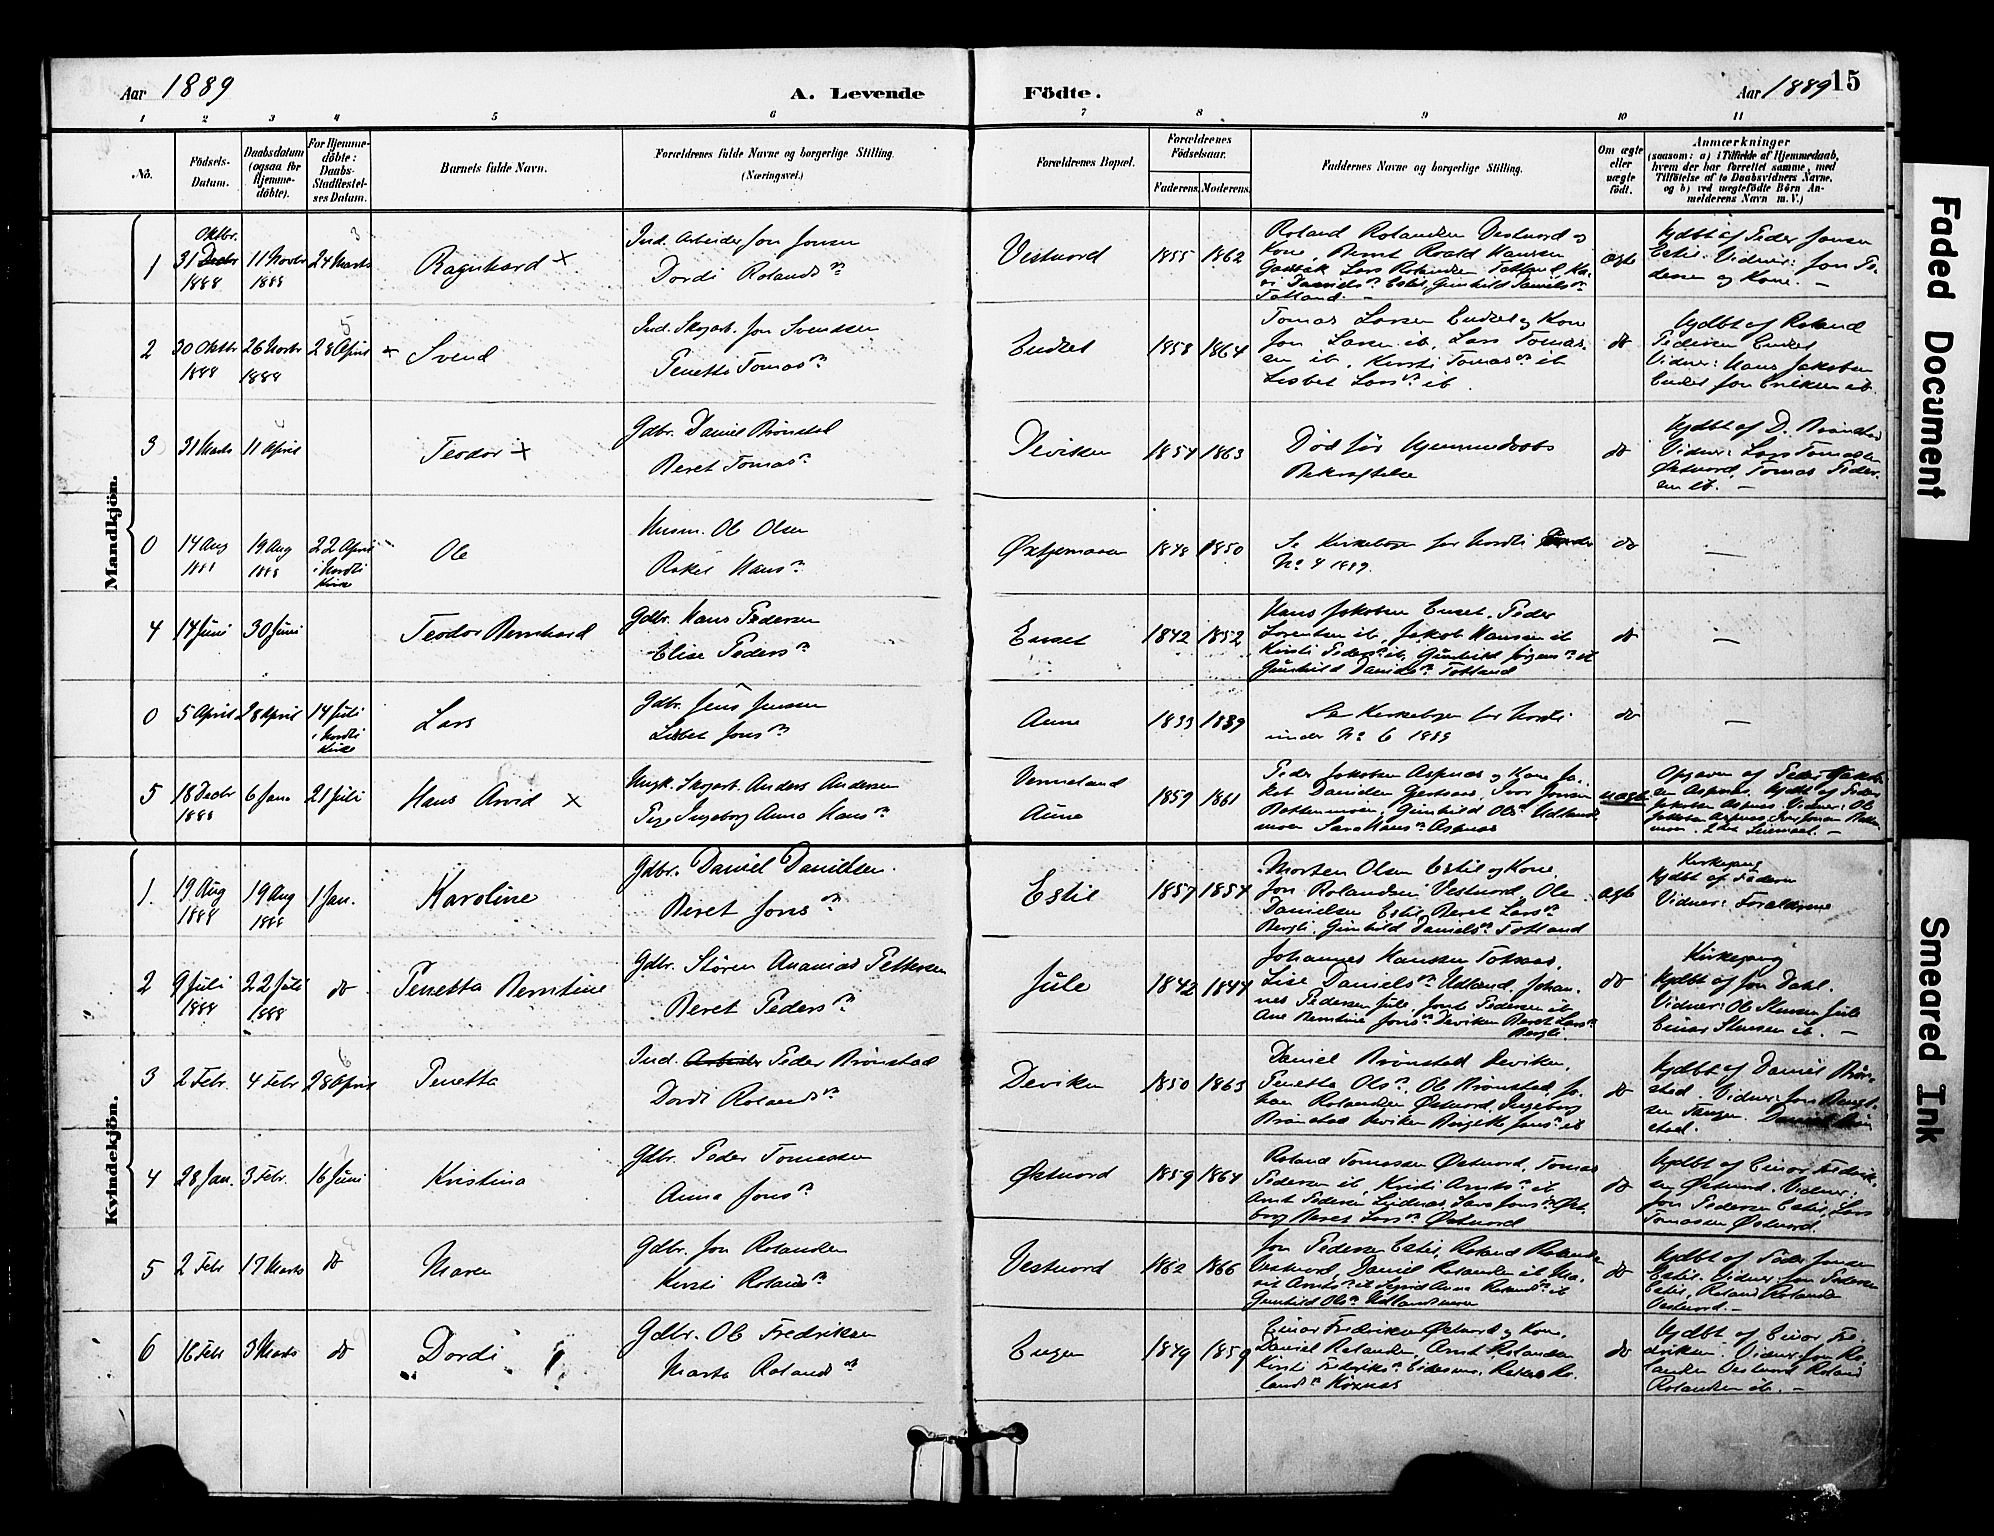 Aar 1889
A. Levende
Födte.
Aar 1889
15
1 2 3 4 5 6 7 8 9 10 11
No.
Födsels-
Datum.
Daabsdatum
(ogsaa for
Hjemme-
döbte).
For Hjemme-
döbte:
Daabs-
Stadfæstel-
ses Datum.
Barnets fulde Navn.
Forældrenes fulde Navne og borgerlige Stilling.
(Næringsvei.)
Forældrenes Bopæl.
Forældrenes
Födselsaar.
Faderens.
Moderens.
Faddernes Navne og borgerlige Stilling.
Om ægte
eller
uægte
födt.
Anmærkninger
(saasom: a) i Tilfælde af Hjemmedaab,
hvem der har forrettet samme, med
Tilföielse af to Daabsvidners Navne,
og b) ved uægtefödte Börn An-
melderens Navn m. V.)
Mandkjön.
1
Oktbr.
31 Decbr
1888
11 Novbr
1888
3
24 Marts
Ragnhard x
Ind. Arbeider Jon Jonsen
Dordi Rolandsdr
Vestnord
1855
1862
Roland Rolandsen Vestnord og
Kone, Bernt Roald Hansen
Lars Rolandsen Totland,
Danielsdr Estil, Gunhild Danielsdr
Totland. —
ægte
Hjdbt af Peder Jonsen
Estil. Vidner: Jon Pe-
dersen og Kone. —
2
30 Oktbr
1888
26 Novbr
1888
5
28 April
x Svend
Ind. Skogarb. Jon Svendsen
Penetta Tomasdr
1858
1864
Tomas Larsen og Kone
Jon Larsen ib, Lars Tomas-
sen ib, Kirsti Tomasdr ib
Lisbet Larsdr ib.
do
Hjdbt af Roland
Pedersen
Vidner: Hans Jakobsen
Jon Eriksen ib.
3
31 Marts
11 April
Teodor x
Gdbr. Daniel Brönstad
Beret Tomasdr
Deviken
1854
1863
Död för Hjemmedaabs
Bekræftelse
do
Hjdbt af D. Brönstad
Vidner: Lars Tomassen
Östnord, Tomas Peder-
sen ib. —
0
14 Aug
1888
19 Aug
1888
22 April
i Nordli
Kirke
Ole
Husm. Ole Olsen
Rakel Hansdr
1848
1850
Se Kirkebogen for Nordli under
No 4 1889.
do
—
4
14 Juni
30 Juni
Teodor Bernhard
Gdbr. Hans Pedersen
Elise Pedersdr
1842
1852
Hans Jakobsen Peder
Lorentsen ib, Jakob Hansen ib
Kirsti Pedersdr ib, Gunhild Jörgensdr ib
Gunhild Danielsdr Totland
do
—
0
5 April
28 April
14 Juli
i Nordli
Kirke
Lars
Gdbr. Jens Jensen
Lisbet Jonsdr
Aune
1889
Se Kirkebogen for Nordli
under No 6 1889
do
—
5
18 Decbr
1888
6 Janr
21 Juli
Hans Arvid x
Ungk. Skogarb. Anders Andersen
Pige Ingeborg Anna Hansdr
Vermeland
Aune
1859
1861
Peder Jakobsen Aspnæs og Kone
Danielsen Jonsen
Bekkemoen, Gunhild Olsdr Udlands-
moen Sara Hansdr Aspnæs
uægte
Opgaven af Peder Jakob-
sen Aspnæs. Hjdbt af Peder
Jakobsen Aspnæs. Vidner: Ole
Jakobsen Aspnæs, Jonsen Bekke-
moen. 2det Leiermaal. —
Kvindekjön.
1.
19 Aug
1888
19 Aug
1888
1 Jan.
Karoline
Gdbr. Daniel Danielsen
Beret Jonsdr
Estil
1857
1854
Morten Olsen Estil og Kone,
Jon Rolandsen Vestnord, Ole
Danielsen Estil, Beret Larsdr
Bergli, Gunhild Danielsdr Totland
ægte
Kirkegang
Hjdbt af Faderen
Vidner: Forældrene
2
9 Juli
1888
22 Juli
1888
do
Penetta Berntine
Gdbr. Stören Ananias Pettersen
Beret Pedersdr
Jule
1842
1844
Johannes Hansen Totsaas,
Lise Danielsdr Udland, Johan-
nes Pedersen Jule, Pedersen ib
Ane Berntine Jonsdr Deviken Beret Larsdr
Bergli
do
Kirkegang
Hjdbt af Jon Dahl.
Vidner: Ole Stensen Jule
Einar Stensen ib. —
3
2 Febr.
4 Febr
6
28 April
Penetta
Ind. Arbeider Peder Brönstad
Dordi Rolandsdr
Deviken
1850
1863
Daniel Brönstad Deviken,
Penetta Olsdr, Ole Brönstad, Jo-
han Rolandsen Östnord, Ingeborg
Brönstad Deviken Jonsdr ib
do
Hjdbt af Daniel Brön-
stad. Vidner: Jon Bengt-
sen Tangen.
stad.
4
28 Jan.
3 Febr.
7
16 Juni
Kristina
Gdbr. Peder Tomassen
Anna Jonsdr
Östnord
1859
1864
Roland Tomassen Östnord, Tomas
Pedersen ib, Kirsti Arntsdr ib
Arnt Pedersen Sara Jonsdr
Beret Larsdr Östnord
do
Hjdbt af Einar Fredrik-
sen Östnord. Vidner:
Jon Pedersen Estil, Lars
Tomassen Östnord.
5
2 Febr
17 Marts
8
do
Maren
Gdbr. Jon Rolandsen
Kirsti Rolandsdr
Vestnord
1862
1866
Jon Pedersen Estil, Roland Rolandsen
Vestnord, Daniel Rolandsen ib, Ma-
rit Arntsdr ib Sigrid Anna Rolandsdr ib
Gunhild Olsdr Udlandsmoen
do
Hjdbt af Peder Jonsen
Estil. Vidner: Jon Pedersen
Estil, Roland Rolandsen
Vestnord. —
6
16 Febr
3 Marts
do
Dordi
Gdbr. Ole Fredriksen
Marta Rolandsdr
Engen
1849
1859
Einar Fredriksen Östnord og Kone,
Daniel Rolandsen, Arnt Rolandsen
Kirsti Fredriksdr Ro-
landsdr
do
Hjdbt af Einar Fre-
driksen. Vidner: Jon Ro-
landsen Vestnord Roland
Rolandsen ib. —
Faded Document
Smeared Ink